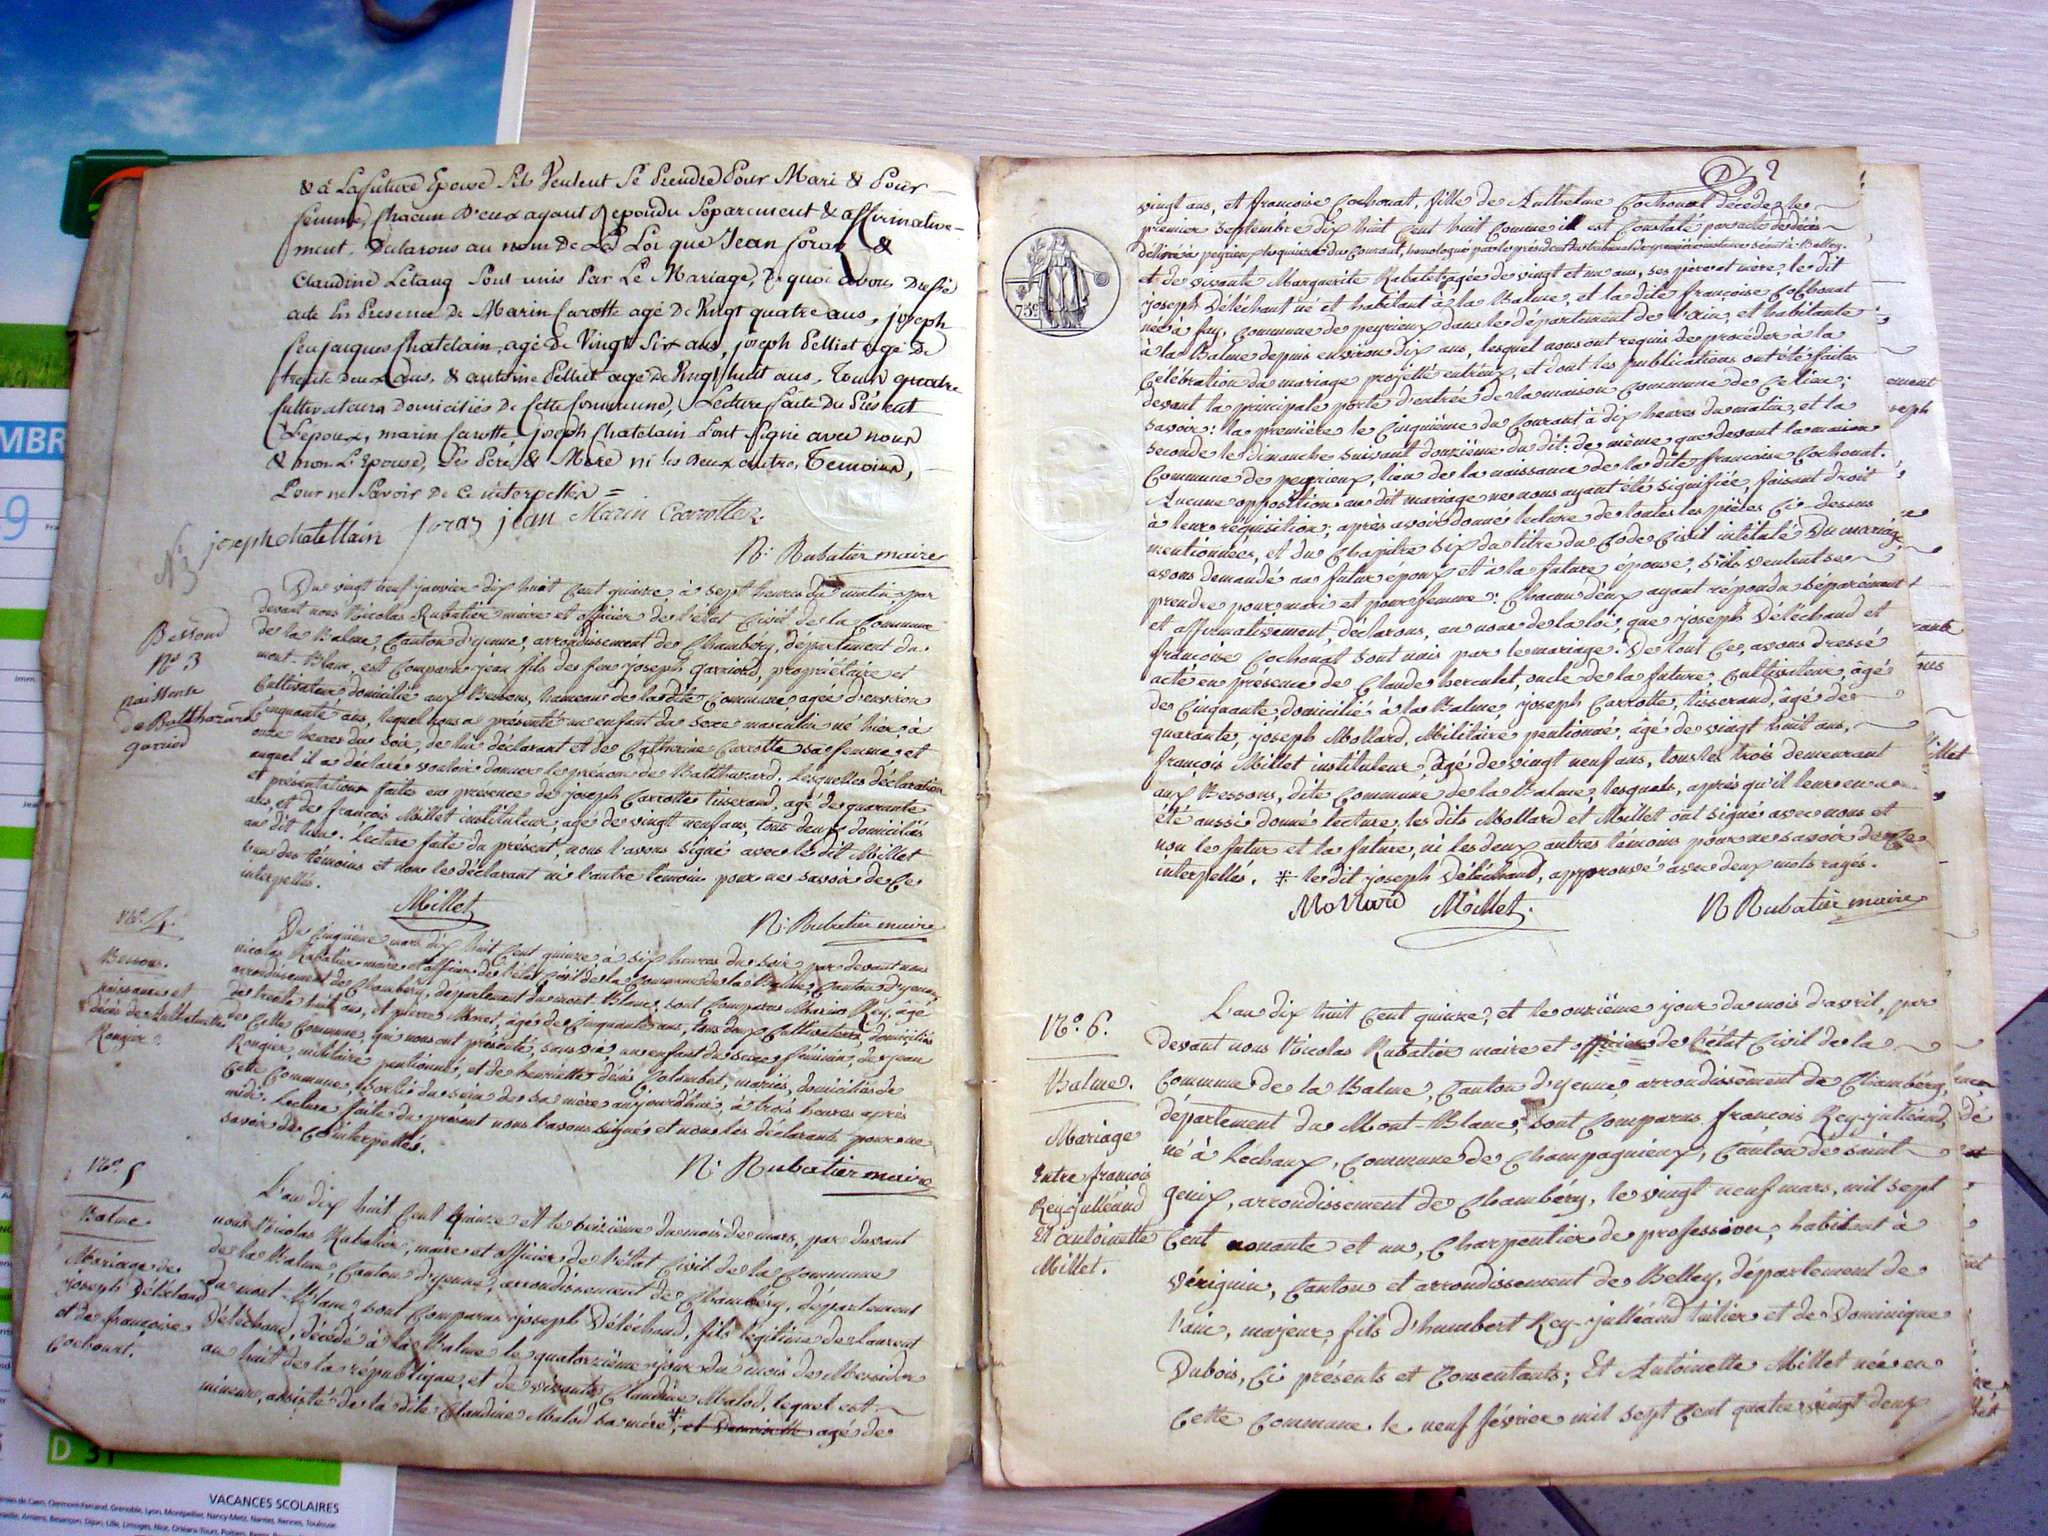 & à La future Epouse S'ils Veulent Se Prendre Pour Mari & Pour
femme, Chacun D'eux ayant Repondu Separement & affirmative-
ment. Declarons au nom De La Loi que Jean Joraz &
Claudine Letang Sont unis Par Le Mariage, De quoi avons Dressé
acte En Presence De Marin Carotte agé De Vingt quatre ans, joseph
feu jacques Chatelain, agé De Vingt Six ans, joseph Pelliet agé De
trente Deux ans, & antoine Pelliet agé De Vingt huit ans, Tous quatre
Cultivateurs Domiciliés De Cette Commune, Lecture faite Du Présent
L'epoux, marin Carotte, joseph Chatelain L'ont Signé avec nous
& non L'Epouse, Les Pere & Mere ni les Deux autres Temoins,
Pour ne Savoir De Ce interpellés =
joseph chatellain Joraz jean Marin Carrottez
N. Rubatier maire
N.º 3
Du vingt neuf janvier dix huit Cent quinze à Sept heures du matin par
devant nous Nicolas Rubatier maire et officier de l'état Civil de la Commune
de la Balme, Canton d'yenne, arrondissement de Chambéry, département du
mont-Blanc, est Comparu jean fils de feu joseph garriod, propriétaire et
Cultivateur domicilié aux Bessons, hameau de la dite Commune, agé d'environ
Cinquante ans, lequel nous a présenté un enfant du Sexe masculin né hier à
onze heures du Soir, de lui déclarant et de Catherine Carrotte sa femme, et
auquel il a déclaré vouloir donner le prénom de Balthazard. Lesquelles déclaration
et présentation faites en presence de joseph Carrotte tisserand, agé de quarante
ans, et de françois Millet instituteur, agé de vingt neuf ans, tous deux domiciliés
au dit lieu. Lecture faite du présent, nous l'avons signé avec le dit Millet
l'un des témoins et non le déclarant ni l'autre temoin pour ne savoir de Ce
interpellés.
Bessond
Nº 3
naissance
de Balthazard
garriod
Millet
N. Rubatier maire
Nº 4.
Bessons.
naissance et
décès de
Rongier
Du Cinquième mars dix huit Cent quinze à Six heures du Soir par devant nous
nicolas Rubatier maire et officier de l'état Civil de la Commune de la Balme, Canton d'yenne,
arrondissement de Chambéry, département du mont-Blanc, sont Comparus Marin Rey, âgé
de trente huit ans, et pierre Monet, âgé de Cinquante ans, tous deux Cultivateurs, domiciliés
de Cette Commune, qui nous ont présenté, sans vie, un enfant du sexe féminin, de jean
Rongier, militaire pentionné, et de henriette denis Colombet, mariés, domiciliés de
Cette Commune, sorti du sein de sa mère aujourdhui, à trois heures après
midi. Lecture faite du présent nous l'avons signé et non les déclarants pour ne
savoir de Ce interpellés.
N. Rubatier maire
Nº 5
Balme
Mariage de
joseph Déléchand
et de françoise
Cochonat.
L'an dix huit Cent quinze et le treizième du mois de mars, par devant
nous Nicolas Rubatier, maire et officier de l'état Civil de la Commune
de la Balme, Canton d'yenne, arrondissement de Chambéry, département
du mont-Blanc, sont Comparus joseph Déléchand, fils legitime de laurent
Déléchand, décédé à la Balme le quatorzième jour du mois de Messidor
an huit de la république, et de vivante Claudine Malod, lequel est
mineur, assisté de la dite Claudine Malod sa mère *, et agé de
2
vingt ans, et françoise Cochonat, fille de Anthelme Cochonat décédé le
premier Septembre dix huit Cent huit Comme il est Constaté par acte de décès
délivré à peyrieux le quinze du Courant, homologué par le président du tribunal de première instance séant à Belley.
et de vivante Marguerite Rabatet agée de vingt et un ans, ses père et mère. le dit
joseph Déléchant né et habitant à la Balme, et la dite françoise Cochonat
née à fay, Commune de peyrieux dans le département de l'ain, et habitante
à la Balme depuis environ dix ans, lesquel nous ont requis de procéder à la
Célébration du mariage projetté entr'eux, et dont les publications ont été faites
devant la principale porte d'entrée de la maison Commune de Ce lieu;
savoir: la première le Cinquième du Courant à dix heures du matin, et la
seconde le dimanche suivant douzième du dit: de même que devant la maison
Commune de peyrieux, lieu de la naissance de la dite françoise Cochonat.
Aucune opposition au dit mariage ne nous ayant été signifiée, faisant droit
à leur réquisition; après avoir donné lecture de toutes les pièces Ci-dessus
mentionnées, et du Chapitre six du titre du Code Civil intitulé Du mariage,
avons demandé au futur époux et à la future épouse, s'ils veulent se
prendre pour mari et pour femme: Chacun d'eux ayant répondu séparément
et affirmativement, déclarons, au nom de la loi, que joseph Déléchand et
françoise Cochonat sont unis par le mariage. De tout Ce, avons dressé
acte en présence de Claude herculet, oncle de la future, Cultivateur, âgé
de Cinquante, domicilié à la Balme, joseph Carrotte, tisserand, âgé de
quarante, joseph Mollard, Militaire pentionné, âgé de vingt huit ans,
françois Millet instituteur, âgé de vingt neuf ans, tous les trois demeurant
aux Bessons, dite Commune de la Balme, lesquels, après qu'il leur en a
été aussi donné lecture, les dits Mollard et Millet ont signé avec nous et
non le futur et la future, ni les deux autres témoins pour ne savoir de Ce
interpellés. * le dit joseph Déléchand, approuvé avec deux mots rayés.
Mollard Millet N Rubatier maire
75 c
Nº 6.
Balme.
Mariage
Entre françois
Rey-julléand
Et Antoinette
Millet.
L'an dix huit Cent quinze, et le onzième jour du mois d'avril, par
devant nous Nicolas Rubatier maire et officier de l'état Civil de la
Commune de la Balme, Canton d'yenne, arrondissement de Chambéry,
département du Mont-Blanc, sont Comparus françois Rey-julléand,
né à Léchaux, Commune de Champagnieux, Canton de saint
genix, arrondissement de Chambéry, le vingt neuf mars, mil sept
Cent nonante et un, Charpentier de profession, habitant à
Vérignin, Canton et arrondissement de Belley, département de
l'ain, majeur, fils d'humbert Rey-julléand tuilier et de Dominique
Dubois, Ci présents et Consentants; Et Antoinette Millet née en
Cette Commune le neuf février mil sept Cent quatre vingt deux
MBR
9
D 31
VACANCES SCOLAIRES